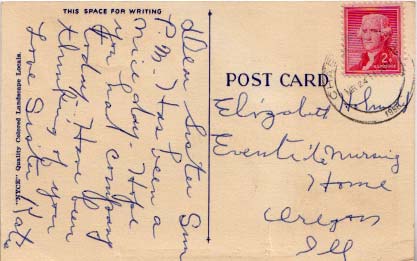 THIS SPACE FOR WRITING
"KYCE" Quality Colored Landscape Locals.
Dear Sister Sun
P.M. - Has been a
nice day - Hope
you had company
today - Have been
thinking of you
Love Sister Kate
POST CARD
2¢
Elizabeth Holmes
Eventide Nursing
Home
Oregon
Ill